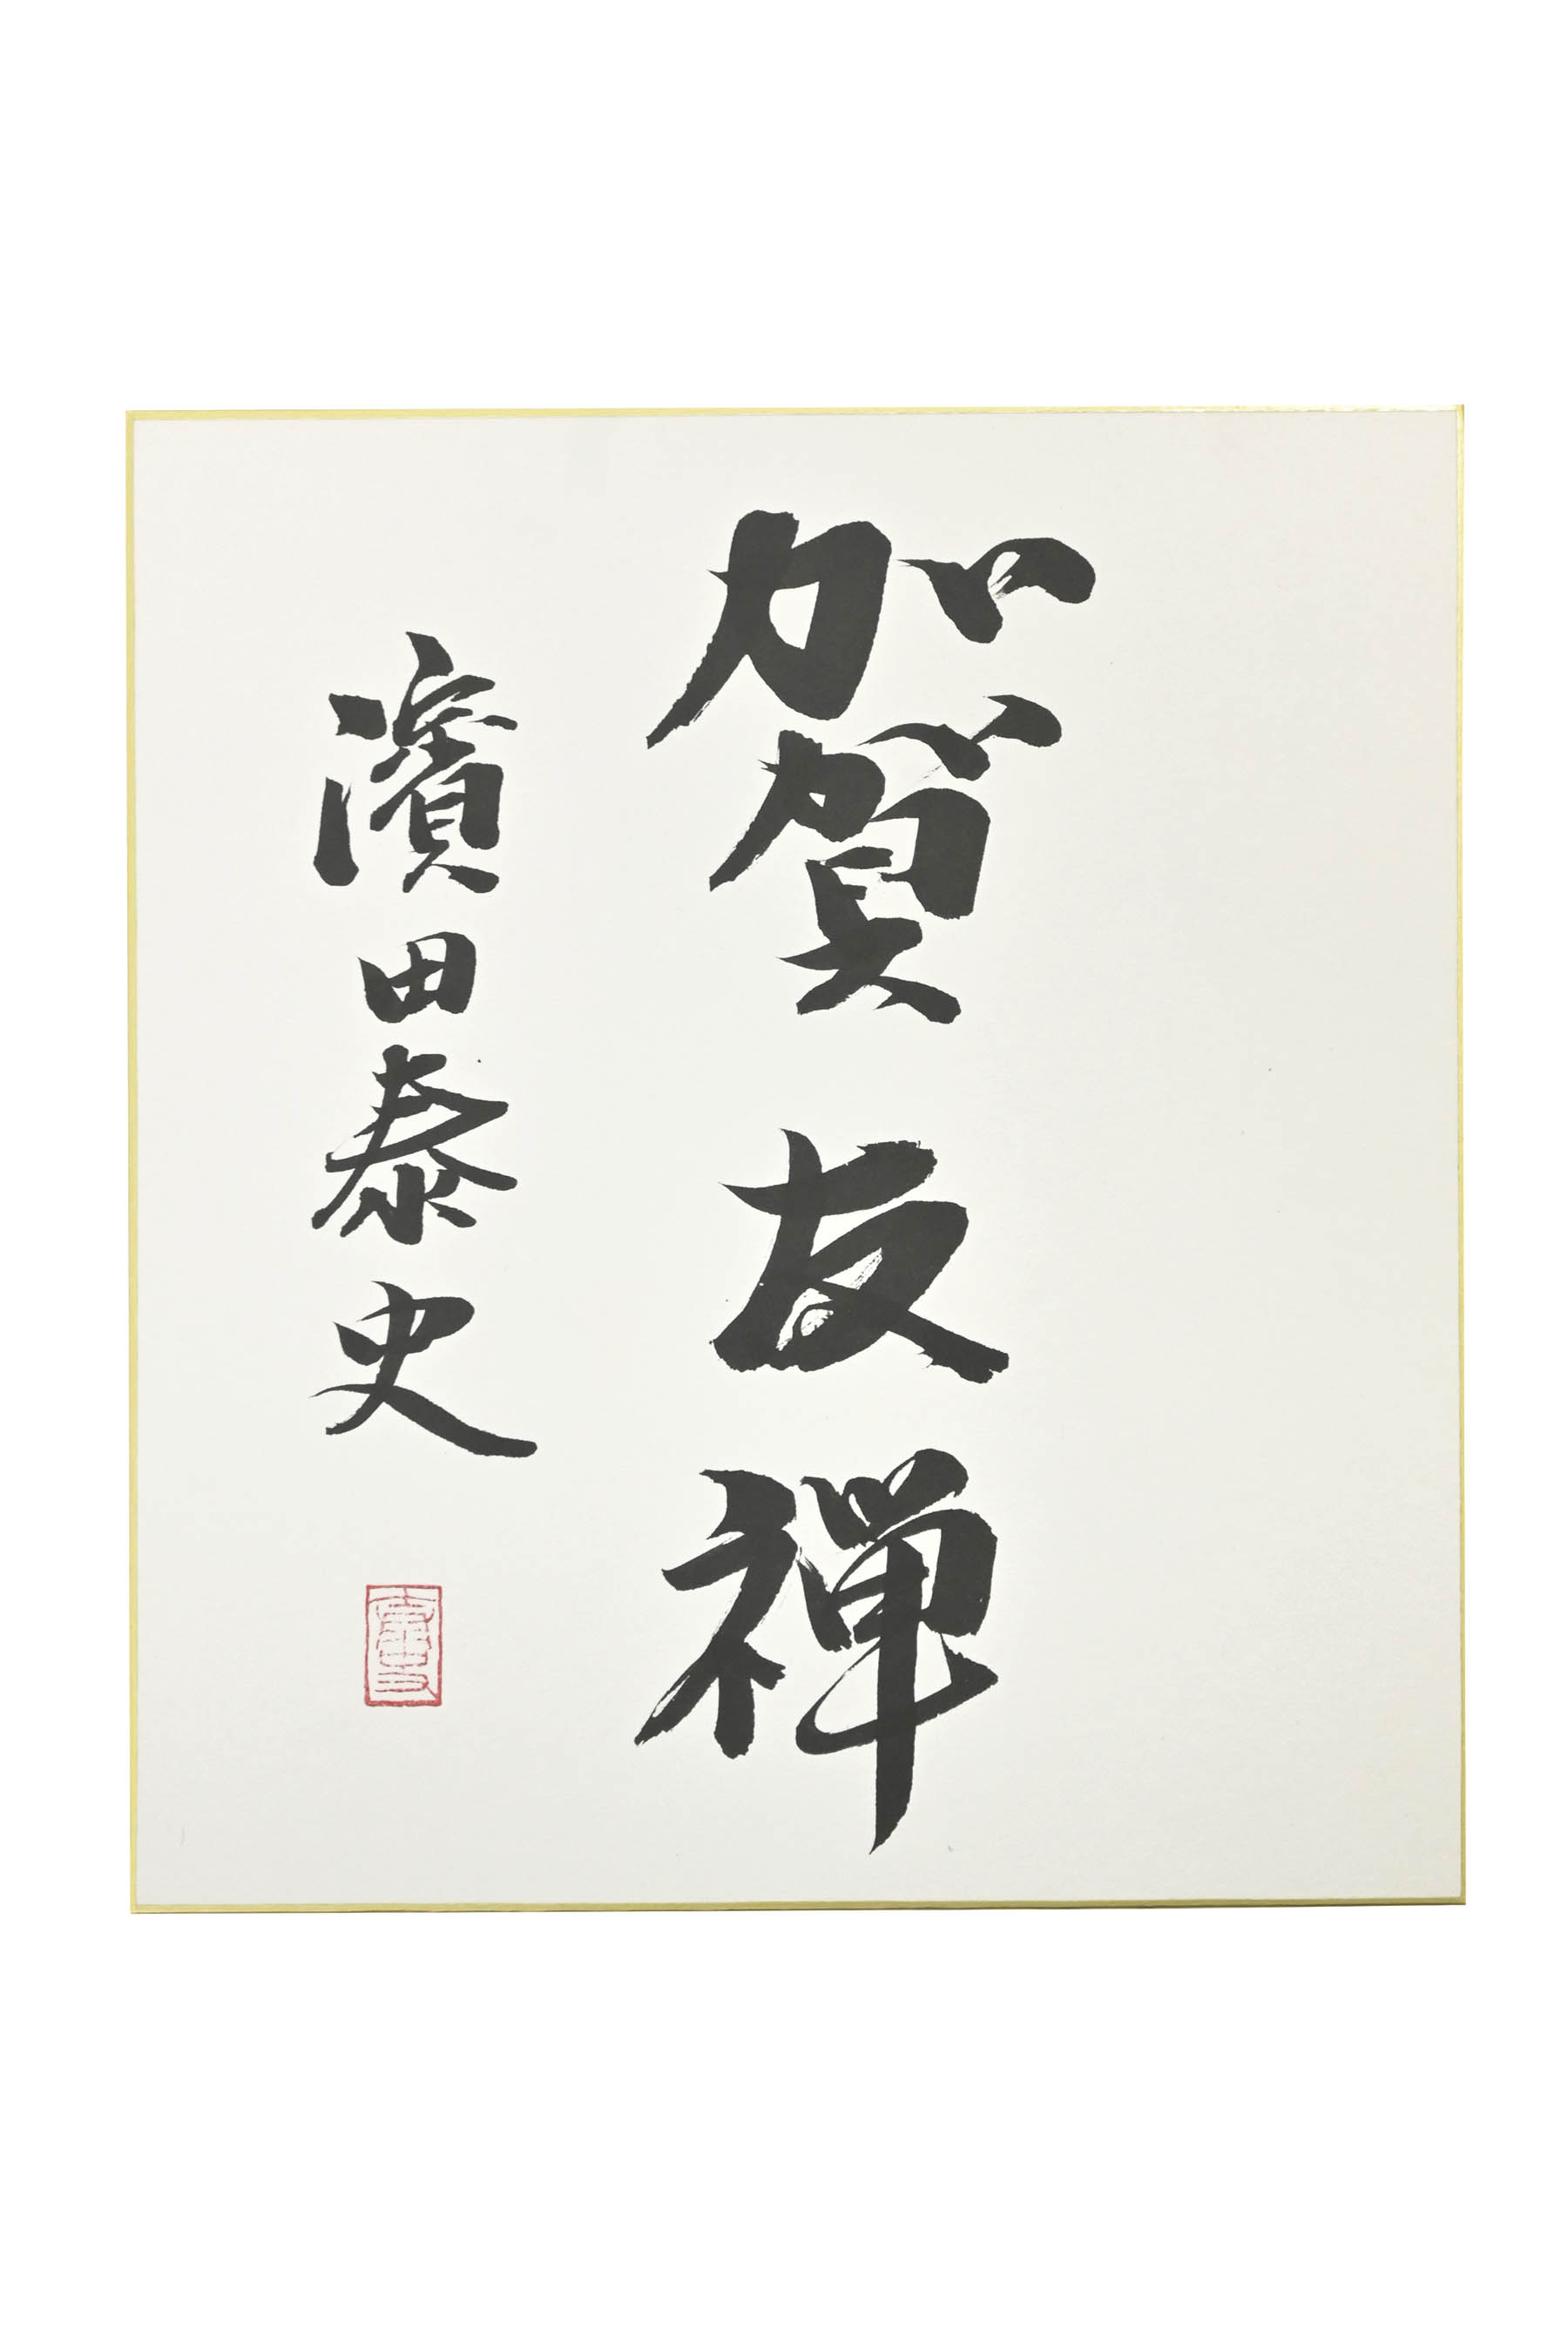 加賀友禅
濱田泰史